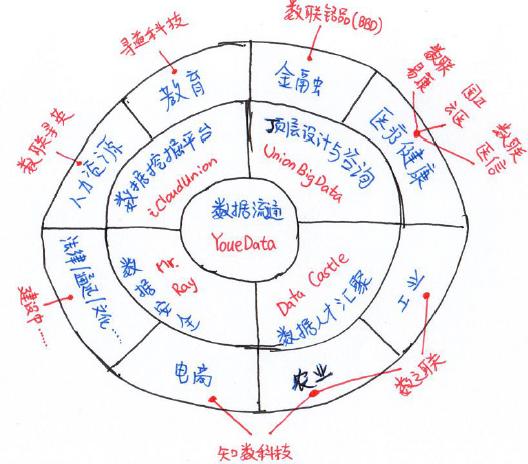 寻道科技
数联铭品(BBD)
数联易康
国卫
数联医信
数联寻英
教育
金融
医疗健康
人力资源
数据挖掘平台
iCloudUnion
顶层设计与咨询
UnionBigData
数据流通
YoueData
法律/交通/文化……
建设中……
数据安全
Mr.
Ray
Data Castle
数据人才汇聚
工业
电商
农业
数之联
知数科技